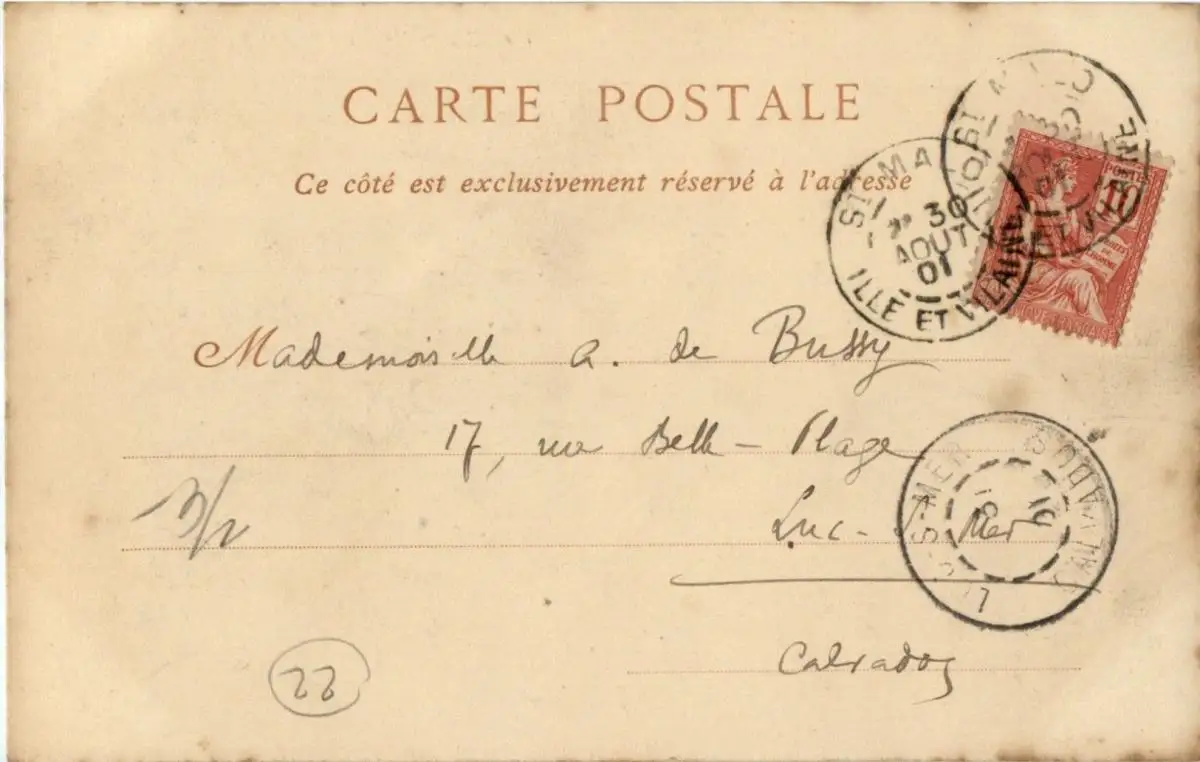 CARTE POSTALE
Ce côté est exclusivement réservé à l'adresse
ST MA
30
AOUT
01
ILLE ET VILAINE
POSTES
10
Mademoiselle A. de Bussy
17, rue Belle-Plage
Luc-S-Mer
Calvados
S-MER
CALVADOS
22